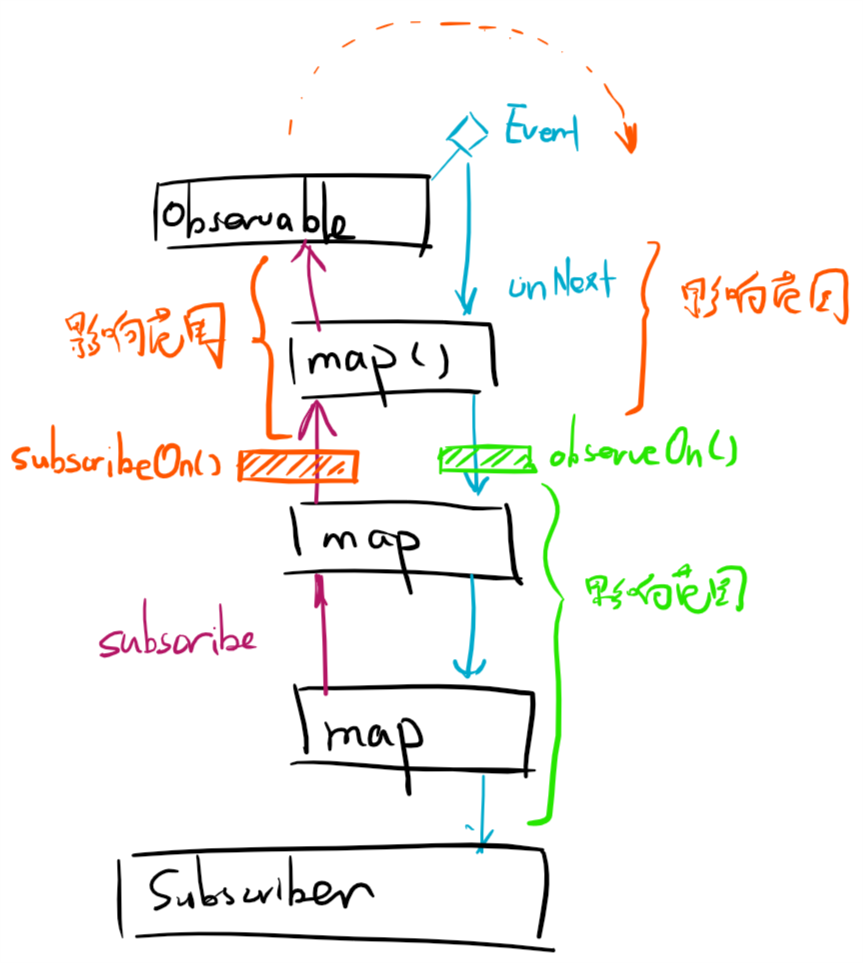 Event
Observable
onNext
影响范围
影响范围
map()
subscribeOn()
observeOn()
map
影响范围
subscribe
map
Subscriber